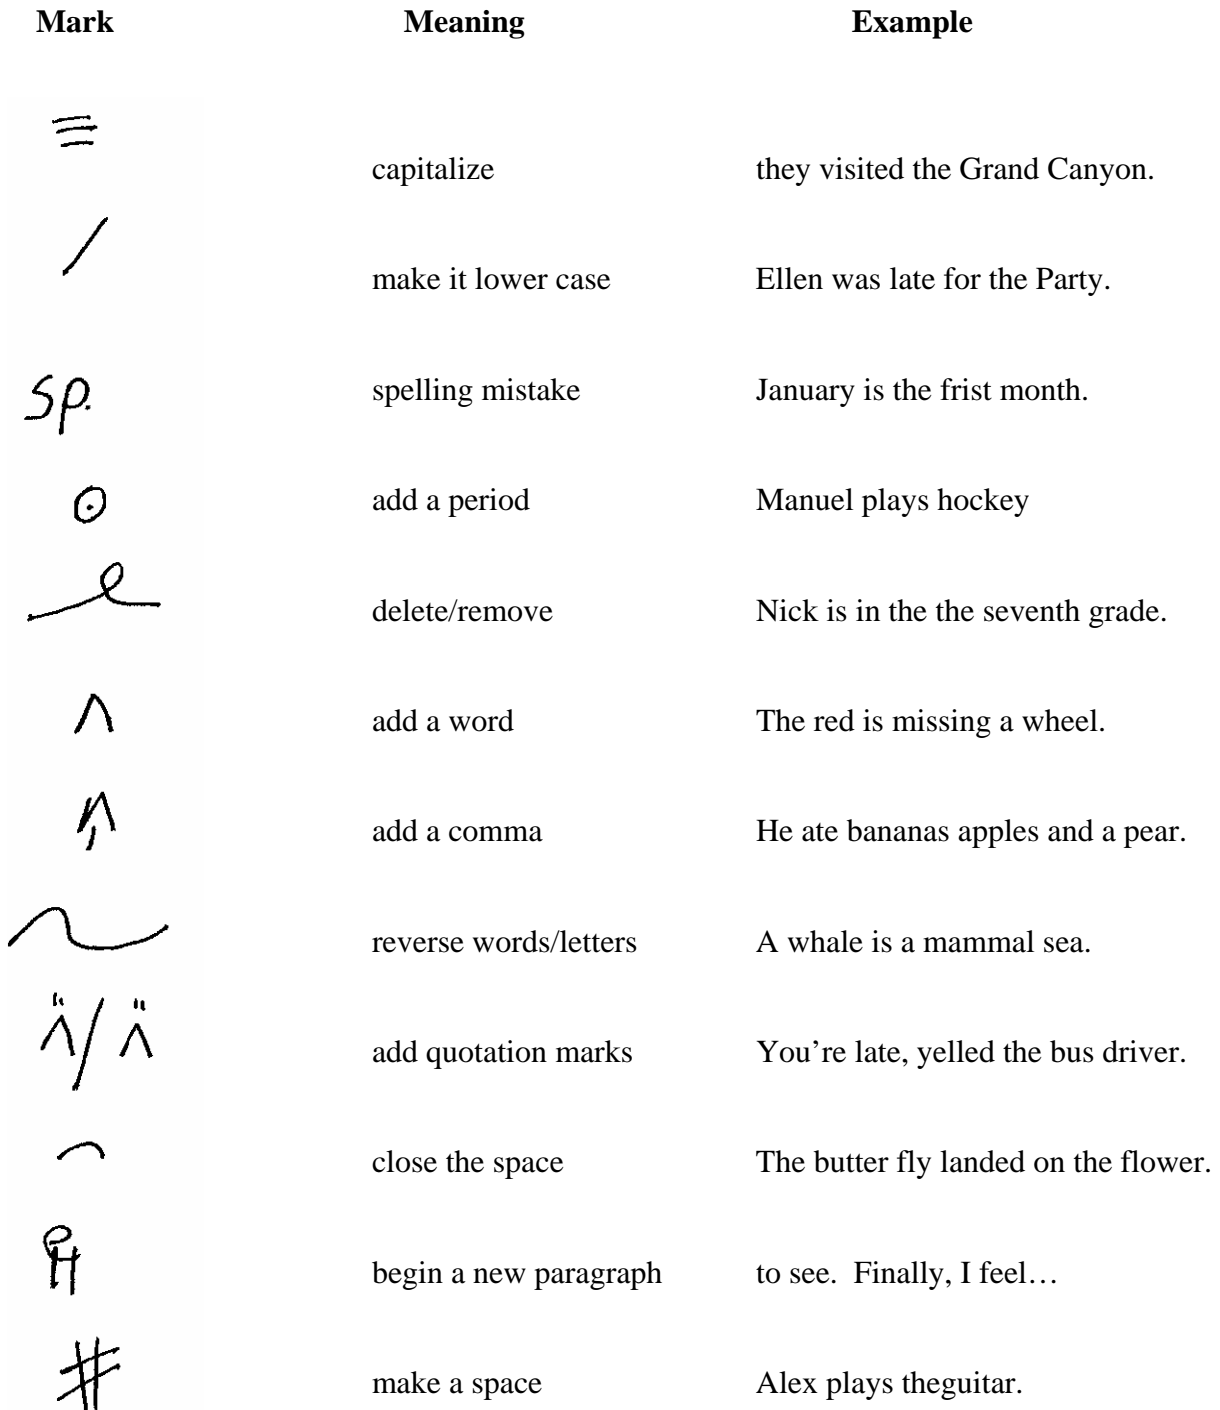 Mark Meaning Example
capitalize they visited the Grand Canyon.
/ make it lower case Ellen was late for the Party.
sp. spelling mistake January is the frist month.
add a period Manuel plays hockey
delete/remove Nick is in the the seventh grade.
^ add a word The red is missing a wheel.
add a comma He ate bananas apples and a pear.
reverse words/letters A whale is a mammal sea.
add quotation marks You’re late, yelled the bus driver.
close the space The butter fly landed on the flower.
begin a new paragraph to see. Finally, I feel…
# make a space Alex plays theguitar.